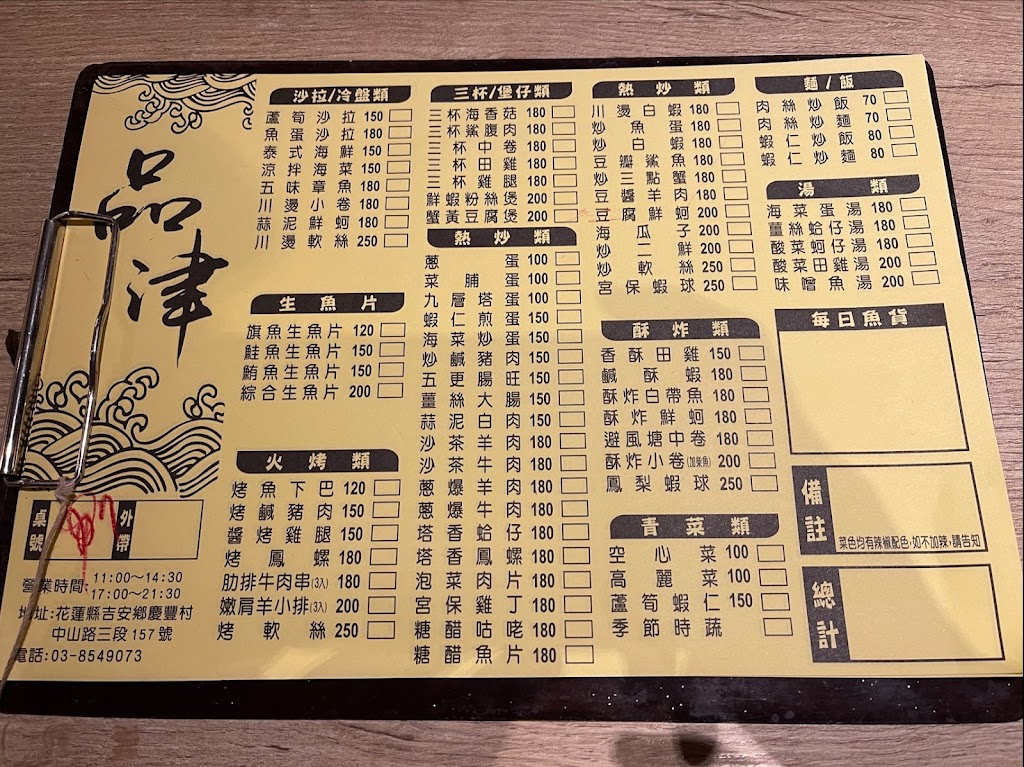 品津
桌號
外帶
營業時間:11:00～14:30
17:00～21:30
地址:花蓮縣吉安鄉慶豐村
中山路三段157號
電話:03-8549073
沙拉/冷盤類
蘆筍沙拉 150
魚蛋沙拉 180
泰式海鮮 150
涼拌海菜 150
五味章魚 180
川燙小卷 180
蒜泥鮮蚵 180
川燙軟絲 250
生魚片
旗魚生魚片 120
鮭魚生魚片 150
鮪魚生魚片 150
綜合生魚片 200
火烤類
烤魚下巴 120
烤鹹豬肉 150
醬烤雞腿 150
烤鳳螺 180
肋排牛肉串(3入) 180
嫩肩羊小排(3入) 200
烤軟絲 250
三杯/堡仔類
三杯海香菇 180
三杯鯊腹肉 180
三杯中卷 180
三杯田雞 180
三杯雞腿 180
鮮蝦粉絲煲 200
蟹黃豆腐煲 200
熱炒類
蔥蛋 100
菜脯蛋 100
九層塔蛋 100
蝦仁煎蛋 150
海菜炒蛋 150
炒鹹豬肉 150
五更腸旺 150
薑絲大腸 150
蒜泥白肉 150
沙茶羊肉 180
沙茶牛肉 180
蔥爆羊肉 180
蔥爆牛肉 180
塔香蛤仔 180
塔香鳳螺 180
泡菜肉片 180
宮保雞丁 180
糖醋咕咾 180
糖醋魚片 180
熱炒類
川燙白蝦 180
炒魚蛋 180
炒白蝦 180
豆瓣鯊魚 180
炒三點蟹 180
豆醬羊肉 180
豆腐鮮蚵 200
海瓜子 200
炒二鮮 200
炒軟絲 250
宮保蝦球 250
酥炸類
香酥田雞 150
鹹酥蝦 180
酥炸白帶魚 180
酥炸鮮蚵 180
避風塘中卷 180
酥炸小卷(加柴魚) 200
鳳梨蝦球 250
青菜類
空心菜 100
高麗菜 100
蘆筍蝦仁 150
季節時蔬
麵/飯
肉絲炒飯 70
肉絲炒麵 70
蝦仁炒飯 80
蝦仁炒麵 80
湯類
海菜蛋湯 180
薑絲蛤仔湯 180
酸菜蚵仔湯 180
酸菜田雞湯 200
味噌魚湯 200
每日魚貨
備註
菜色均有辣椒配色,如不加辣,請告知
總計